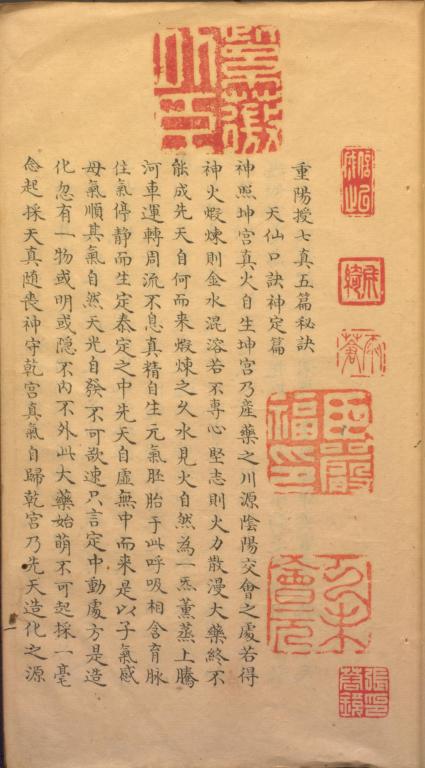 重陽授七真五篇秘訣
天仙口訣神定篇
神照坤宮真火自生坤宮乃產藥之川源陰陽交會之處若得
神火煆煉則金水混溶若不專心堅志則火力散漫大藥終不
能成先天自何而來煆煉之久水見火自然為一炁薰蒸上騰
河車運轉周流不息真精自生元氣胚胎于此呼吸相含育脉
住氣停静而生定泰定之中先天自虛無中而來是以子氣感
母氣順其氣自然天光自發不可欲速只言定中動處方是造
化忽有一物或明或隐不內不外此大藥始萌不可起採一毫
念起採天真隨喪神守乾宮真氣自歸乾宮乃先天造化之源